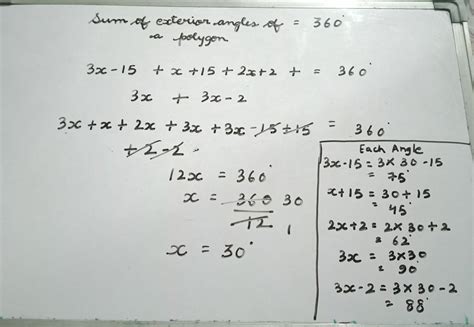 Sum of exterior angles of = 360°
a polygon
3x-15 + x+15 + 2x+2 + = 360°
3x + 3x-2
3x+x+2x+3x+3x-15+15 = 360°
+2-2
12x = 360°
x = 360 30
12 1
x = 30°
Each Angle
3x-15 = 3x30-15
= 75°
x+15 = 30+15
= 45°
2x+2 = 2x30+2
= 62°
3x = 3x30
= 90
3x-2 = 3x30-2
= 88°